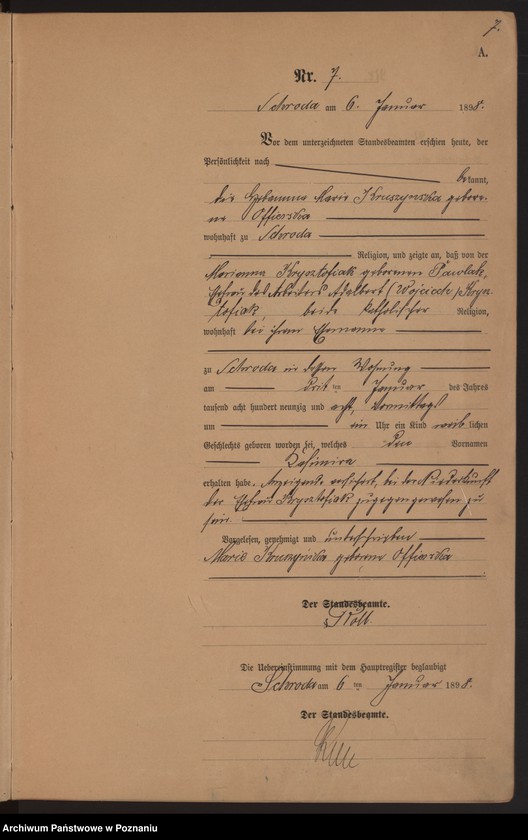 7.
A.
Nr. 7.
Schroda am 6. Januar 1898.
Vor dem unterzeichneten Standesbeamten erschien heute, der
Persönlichkeit nach
bekannt,
die Hebamme Marie Kruszynska gebore-
ne Offierska
wohnhaft zu Schroda
Religion, und zeigte an, daß von der
Marianna Krysztofiak geborenen Pawlak,
Ehefrau des Arbeiters Adalbert (Wojciech) Krysz-
tofiak, beide katholischer Religion,
wohnhaft bei ihrem Ehemanne
zu Schroda in dessen Wohnung
am dritten Januar des Jahres
tausend acht hundert neunzig und acht, Vormittags
um ein Uhr ein Kind weiblichen
Geschlechts geboren worden sei, welches den Vornamen
Kasimira
erhalten habe. Anzeigende versichert, bei der Niederkunft
der Ehefrau Krysztofiak zugegen gewesen zu
sein.
Vorgelesen, genehmigt und unterschrieben
Marie Kruszyńska geborene Offierska
Der Standesbeamte.
Roll.
Die Uebereinstimmung mit dem Hauptregister beglaubigt
Schroda am 6ten Januar 1898.
Der Standesbeamte.
Archiwum Państwowe w Poznaniu